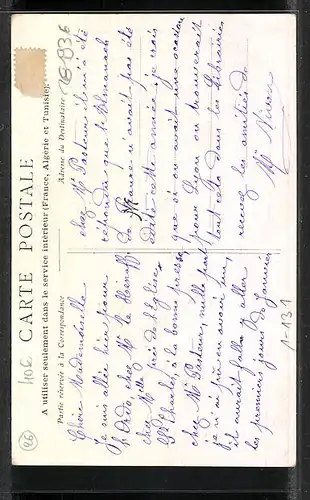 CARTE POSTALE
A utiliser seulement dans le service intérieur (France, Algérie et Tunisie).
Partie réservée à la Correspondance
Adresse du Destinataire
Chère Mademoiselle
je suis allée hier pour
l'Ordo, chez Mr le
chez Mlle près de l'église
St Charles, à la bonne presse,
chez Mr Pasteur, nulle part
je n'ai pu en avoir un,
il aurait fallu aller
les premiers jours de Janvier
chez Mr Pasteur il m'a été
répondu que l'Almanach
de France n'avait pas été
édité cette année, je crois
que si on avait une occasion
pour Lyon on trouverait
tout cela dans les librairies
recevez les amitiés de
1-131
26